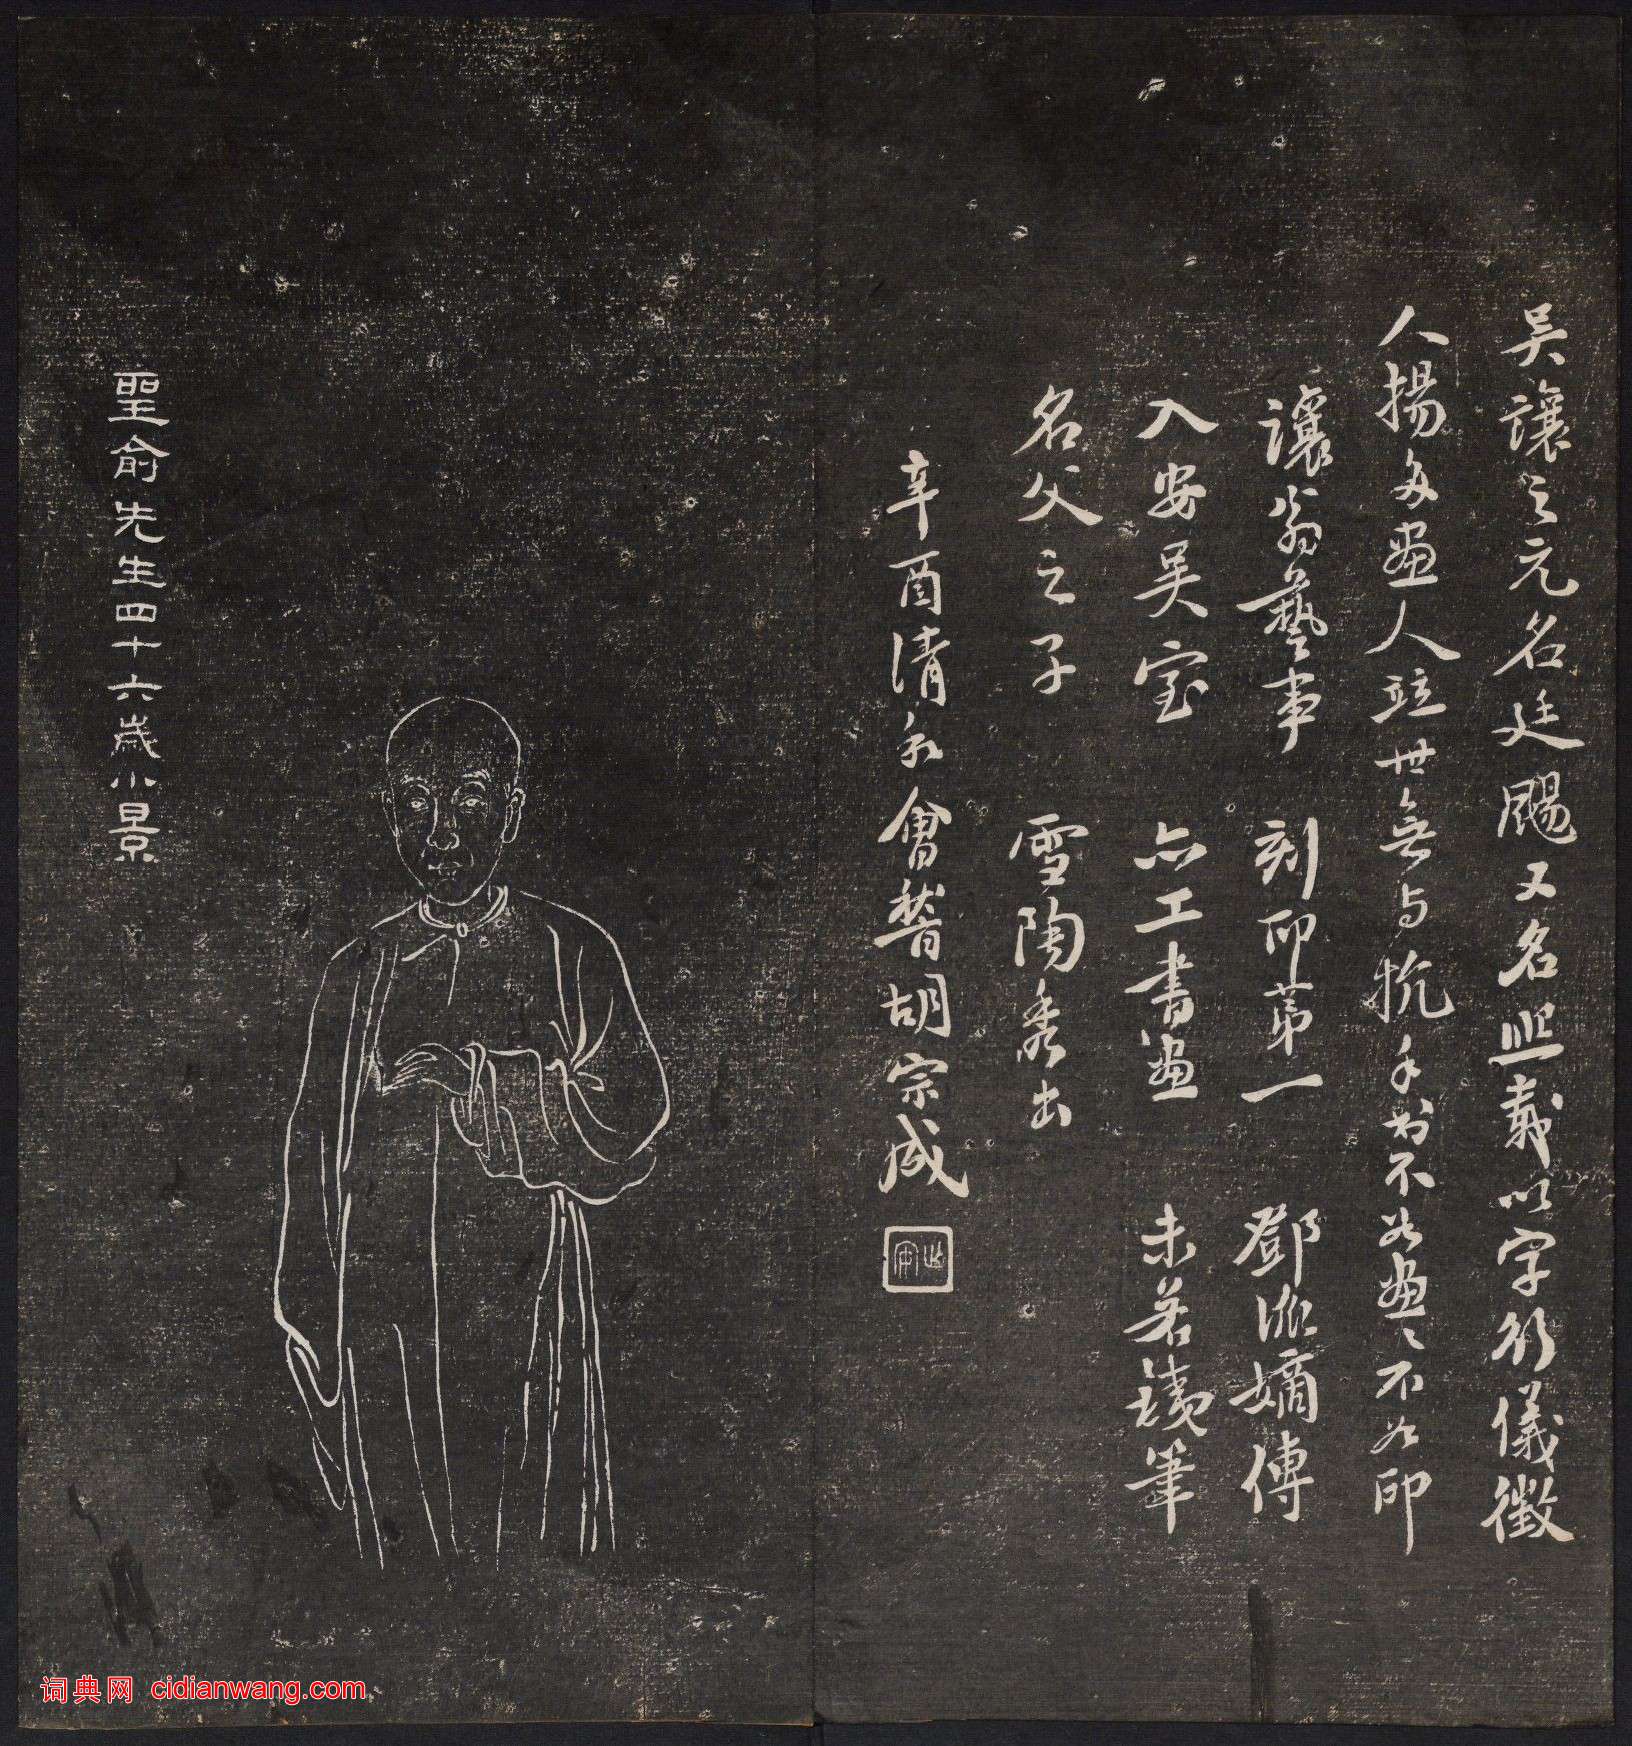 吳讓之元名廷颺又名熙載以字行儀徵
人揚多畫人竝世無与抗手書不如畫〻不如印
讓翁藝事　刻印第一　鄧派嫡傳
入安吳室　亦工書畫　未若鐵筆
名父之子　雪陶秀出
辛酉清和會稽胡宗成
聖俞先生四十六歲小景
词典网 cidianwang.com